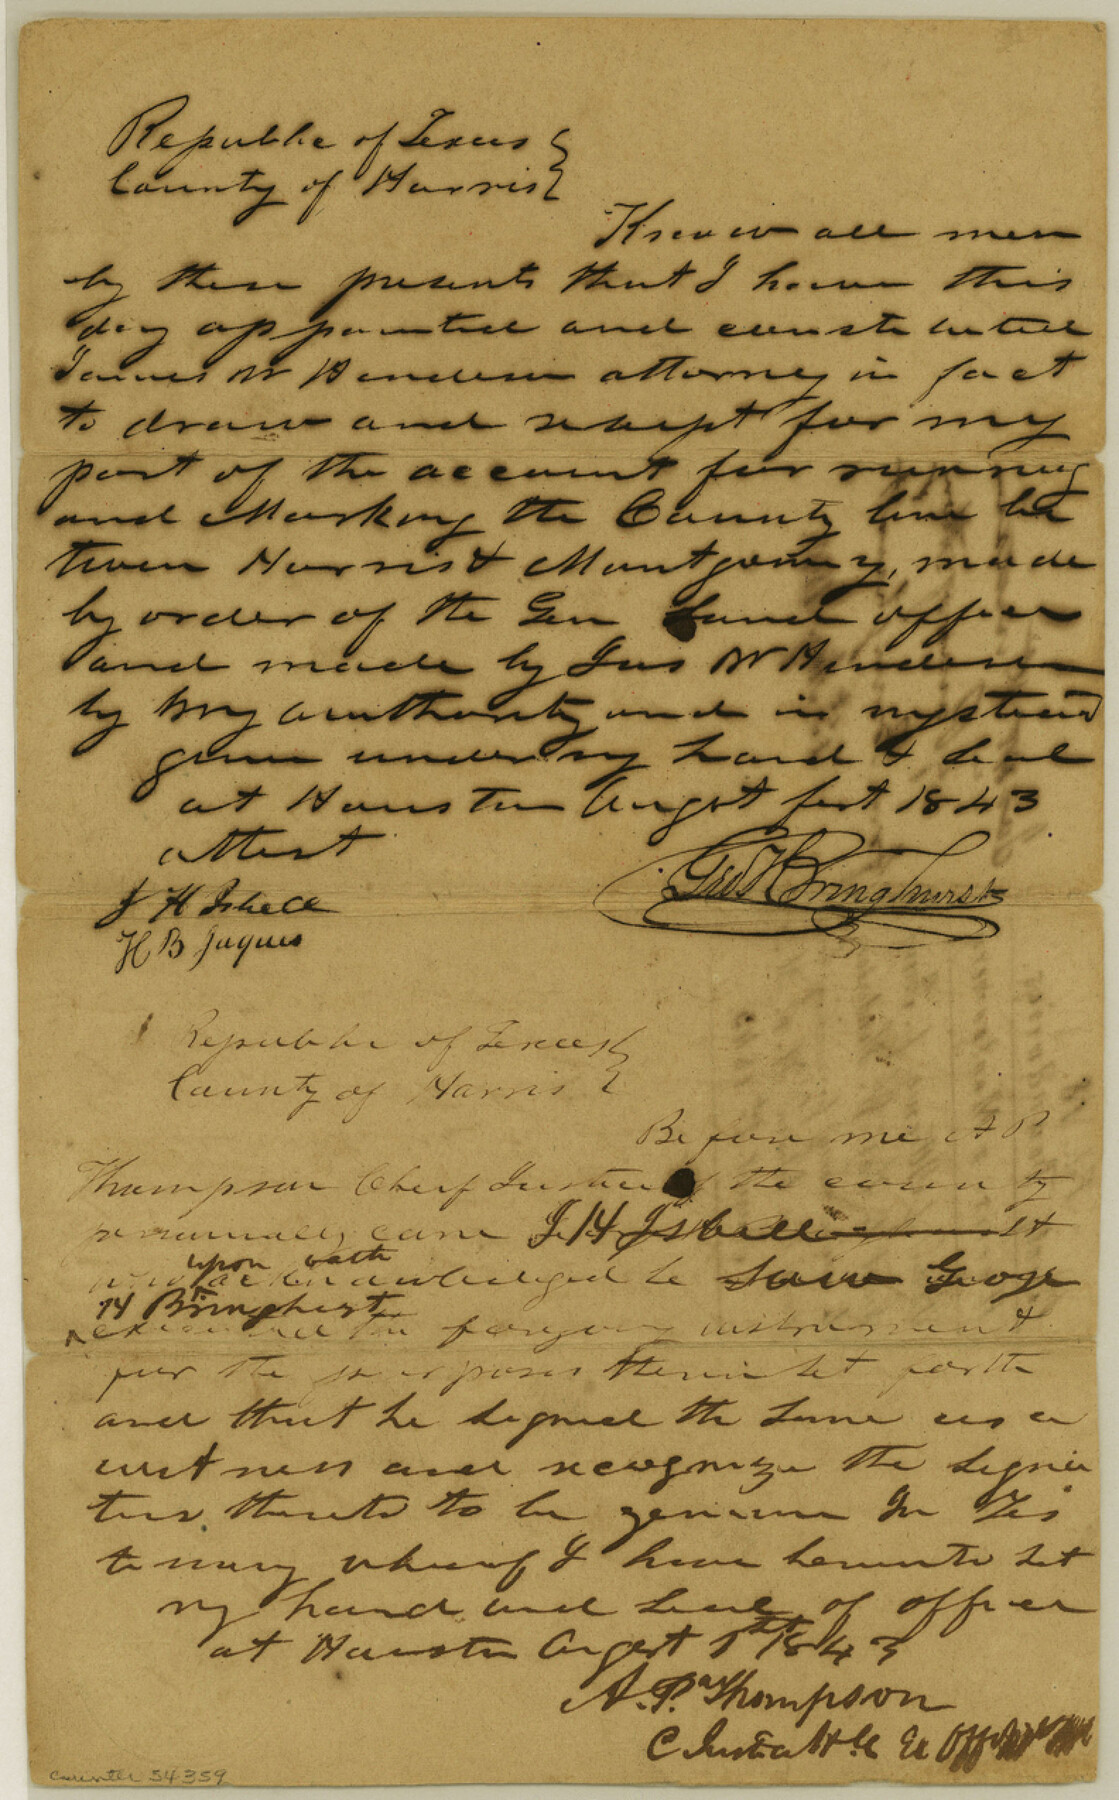 Republic of Texas
County of Harris
Know all men
by these presents that I have this
day appointed and constituted
James W Henderson attorney in fact
to draw and recept for my
part of the account for running
and Marking the County line be
tween Harris & Montgomery, made
by order of the Gen Land officer
and made by Jas W Henderson
by my authority and in my stead
given under my hand & seal
at Houston Augst first 1843
attest
Geo H Bringhurst
J H Isbell
H B Jaques
Republic of Texas
County of Harris
Before me A P
Thompson Cheif Justice of the county
personally came J H Isbell
upon oath
who acknowledged he saw Geoge
H Bringhurst
execute the foregoing instrument
for the purposes therein set forth
and that he signed the same as a
witness and recognize the signa
tures thereto to be genuine In Tes
temony whereof I have hereunto set
my hand and seal of officer
at Houston Augst 1st 1843
A. P. Thompson
C Justice H. C. Ex Off
counter 54359